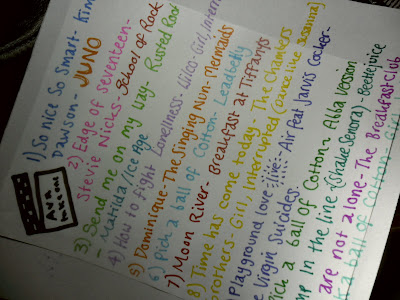 1) So nice So Smart- Kim
Dawson - JUNO
2) Edge of seventeen-
Stevie Nicks- School of Rock
3) Send me on my way- Rusted Root
- Matilda/Ice Age
4) How to fight Loneliness- Wilco- Girl,
5) Dominique- The Singing Nun- Mermaids
6) Pick a ball of Cotton- Leadbelly
7) Moon River- Breakfast at Tiffanys
8) Time has come today- The Chambers
brothers- Girl, Interrupted
Playground love -live- Air feat Jarvis Cocker-
Virgin Suicides.
Pick a ball of Cotton Abba version
in the line- (shake senora)- Beetlejuice
are not alone- The Breakfast club
a ball of cotton- Girl